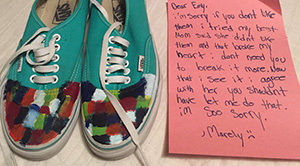 Dear Evry,
i'm Sorry if you dont like
them i tried my best.
Mom said she didnt like
them and that broke my
heart. i dont need you
to break it more. Now
that i see it i agree
with her you Shuldn't
have let me do that.
i'm Soo Sorry.
, Marely